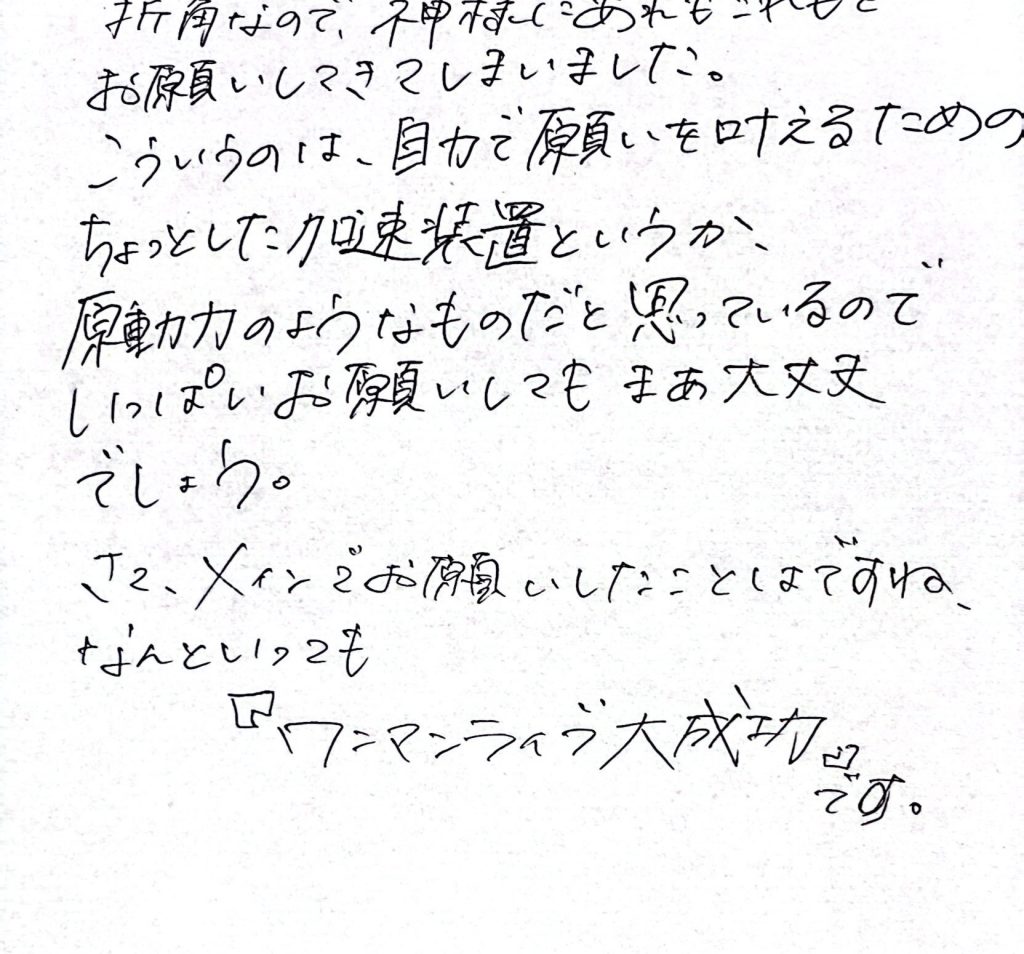 折角なので、神様にあれもこれもと
お願いしてきてしまいました。
こういうのは、自力で願いを叶えるための
ちょっとした加速装置というか、
原動力のようなものだと思っているので
いっぱいお願いしてもまあ大丈夫
でしょう。
さて、メインでお願いしたことはですね、
なんといっても
『ワンマンライブ大成功』
です。